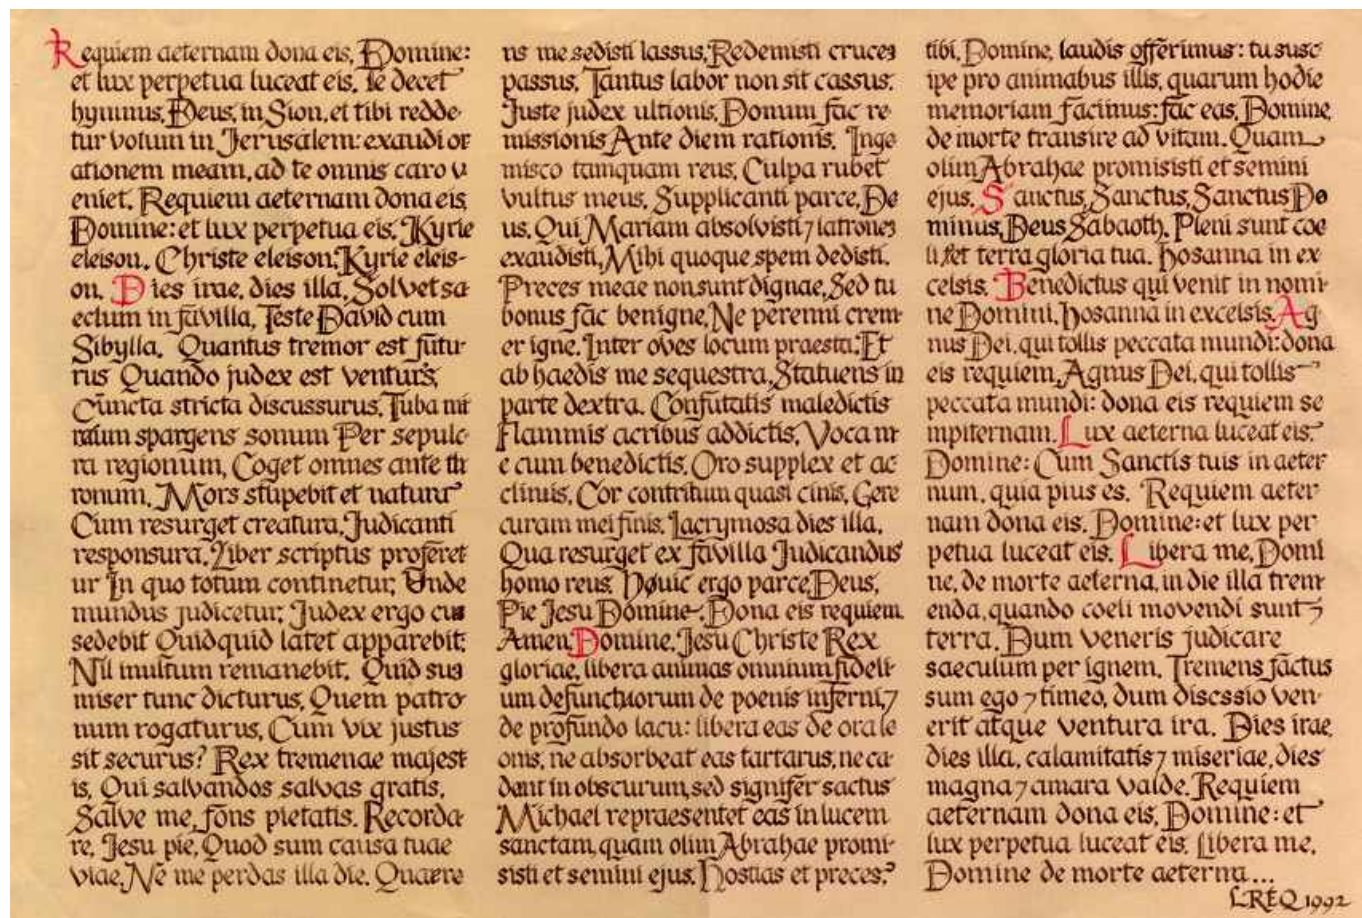 Requiem aeternam dona eis, Domine:
et lux perpetua luceat eis. Te decet
hymnus, Deus, in Sion, et tibi redde-
tur votum in Jerusalem: exaudi or
ationem meam, ad te omnis caro v
eniet. Requiem aeternam dona eis
Domine: et lux perpetua eis. Kyrie
eleison. Christe eleison. Kyrie eleis-
on. Dies irae, dies illa, Solvet sa
eclum in favilla, Teste David cum
Sibylla. Quantus tremor est futu-
rus Quando judex est venturs,
Cuncta stricta discussurus. Tuba mi
raium spargens sonum Per sepulc
ra regionum, Coget omnes ante th
ronum. Mors stupebit et natura
Cum resurget creatura, Judicanti
responsura. Liber scriptus proferet
ur In quo totum continetur, Unde
mundus judicetur. Judex ergo cum
sedebit Quidquid latet apparebit:
Nil inultum remanebit. Quid sum
miser tunc dicturus, Quem patro
num rogaturus, Cum vix justus
sit securus? Rex tremenae majest
is, Qui salvandos salvas gratis,
Salve me, fons pietatis. Recorda
re, Jesu pie, Quod sum causa tuae
viae, Ne me perdas illa die. Quaere
ns me sedisti lassus, Redemisti cruces
passus, Tantus labor non sit cassus.
Juste judex ultionis, Donum fac re
missionis Ante diem rationis. Inge
misco tamquam reus, Culpa rubet
vultus meus, Supplicanti parce, De
us. Qui Mariam absolvisti, ⁊ latrones
exaudisti, Mihi quoque spem dedisti.
Preces meae non sunt dignae, Sed tu
bonus fac benigne, Ne perenni crem
er igne. Inter oves locum praesta: Et
ab haedis me sequestra, Statuens in
parte dextra. Confutatis maledictis
Flammis acribus addictis, Voca m
e cum benedictis. Oro supplex et ac
clinis, Cor contritum quasi cinis, Gere
curam mei finis. Lacrymosa dies illa,
Qua resurget ex favilla Judicandus
homo reus. Houic ergo parce, Deus,
Pie Jesu Domine, Dona eis requiem.
Amen. Domine, Jesu Christe Rex
gloriae, libera animas omnium fideli
um defunctuorum de poenis inferni, ⁊
de profundo lacu: libera eas de ora le
onis, ne absorbeat eas tartarus, ne ca-
dant in obscurum, sed signifer sactus
Michael repraesentet eas in lucem
sanctam, quam olim Abrahae promi-
sisti et semini ejus. Hostias et preces
tibi, Domine, laudis offerimus: tu susc
ipe pro animabus illis, quarum hodie
memoriam facimus: fac eas, Domine,
de morte transire ad vitam. Quam
olim Abrahae promisisti et semini
ejus. Sanctus, Sanctus, Sanctus Do
minus, Deus Sabaoth. Pleni sunt coe
li et terra gloria tua. Hosanna in ex
celsis. Benedictus qui venit in nomi
ne Domini. Hosanna in excelsis. Ag
nus Dei, qui tollis peccata mundi: dona
eis requiem, Agnus Dei, qui tollis
peccata mundi: dona eis requiem se
mpiternam. Lux aeterna luceat eis.
Domine: Cum Sanctis tuis in aeter
num, quia pius es. Requiem aeter
nam dona eis. Domine: et lux per
petua luceat eis. Libera me, Domi
ne, de morte aeterna, in die illa trem
enda, quando coeli movendi sunt ⁊
terra. Dum veneris judicare
saeculum per ignem. Tremens factus
sum ego ⁊ timeo, dum discssio ven
erit atque ventura ira. Dies irae,
dies illa, calamitatis ⁊ miseriae, dies
magna ⁊ amara valde. Requiem
aeternam dona eis, Domine: et
lux perpetua luceat eis. Libera me,
Domine de morte aeterna...
LREQ 1992